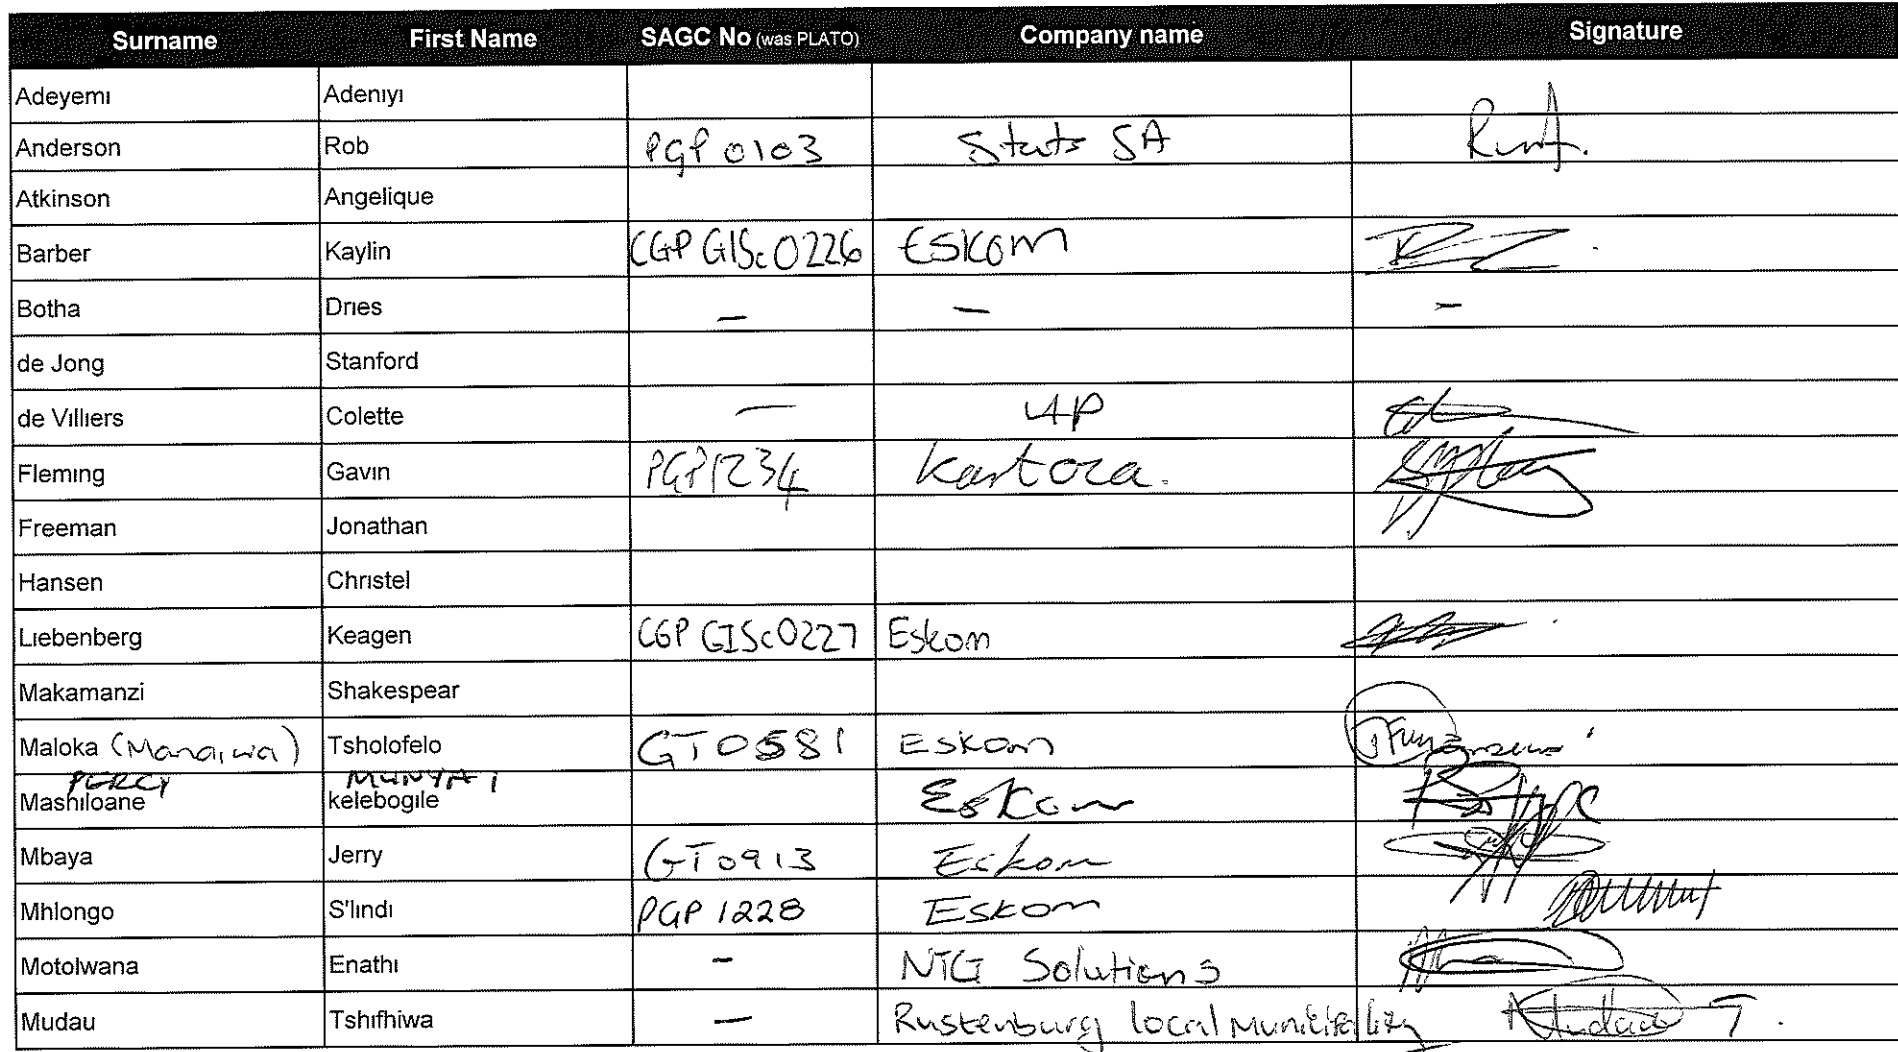 Surname First Name SAGC No (was PLATO) Company name Signature
Adeyemi Adeniyi
Anderson Rob PGP 0103 Stats SA
Atkinson Angelique
Barber Kaylin CGP GISc 0226 ESKOM
Botha Dries – – –
de Jong Stanford
de Villiers Colette – UP
Fleming Gavin PGP1234 Kartoza.
Freeman Jonathan
Hansen Christel
Liebenberg Keagen CGP GISc0227 Eskom
Makamanzi Shakespear
Maloka Tsholofelo GT0581 ESKOM
PERCY MUNYAI
Mashiloane kelebogile Eskom
Mbaya Jerry GT0913 Eskom
Mhlongo S'lindi PGP 1228 ESKOM
Motolwana Enathi – NTG Solutions
Mudau Tshifhiwa – Rustenburg local Municipality Mudau T.